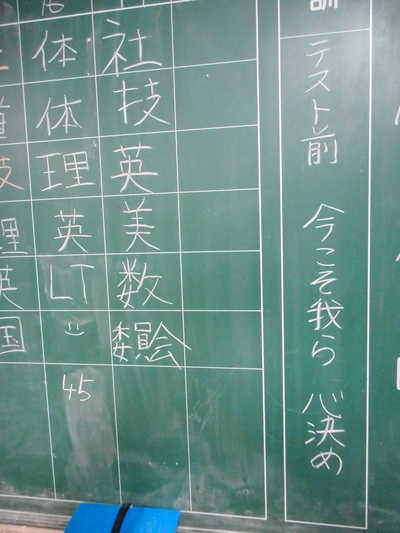 訓
テスト前 今こそ我ら 心決め
社
技
英
美
数
委員会
体
体
理
英
LT
45
道
技
理
英
国